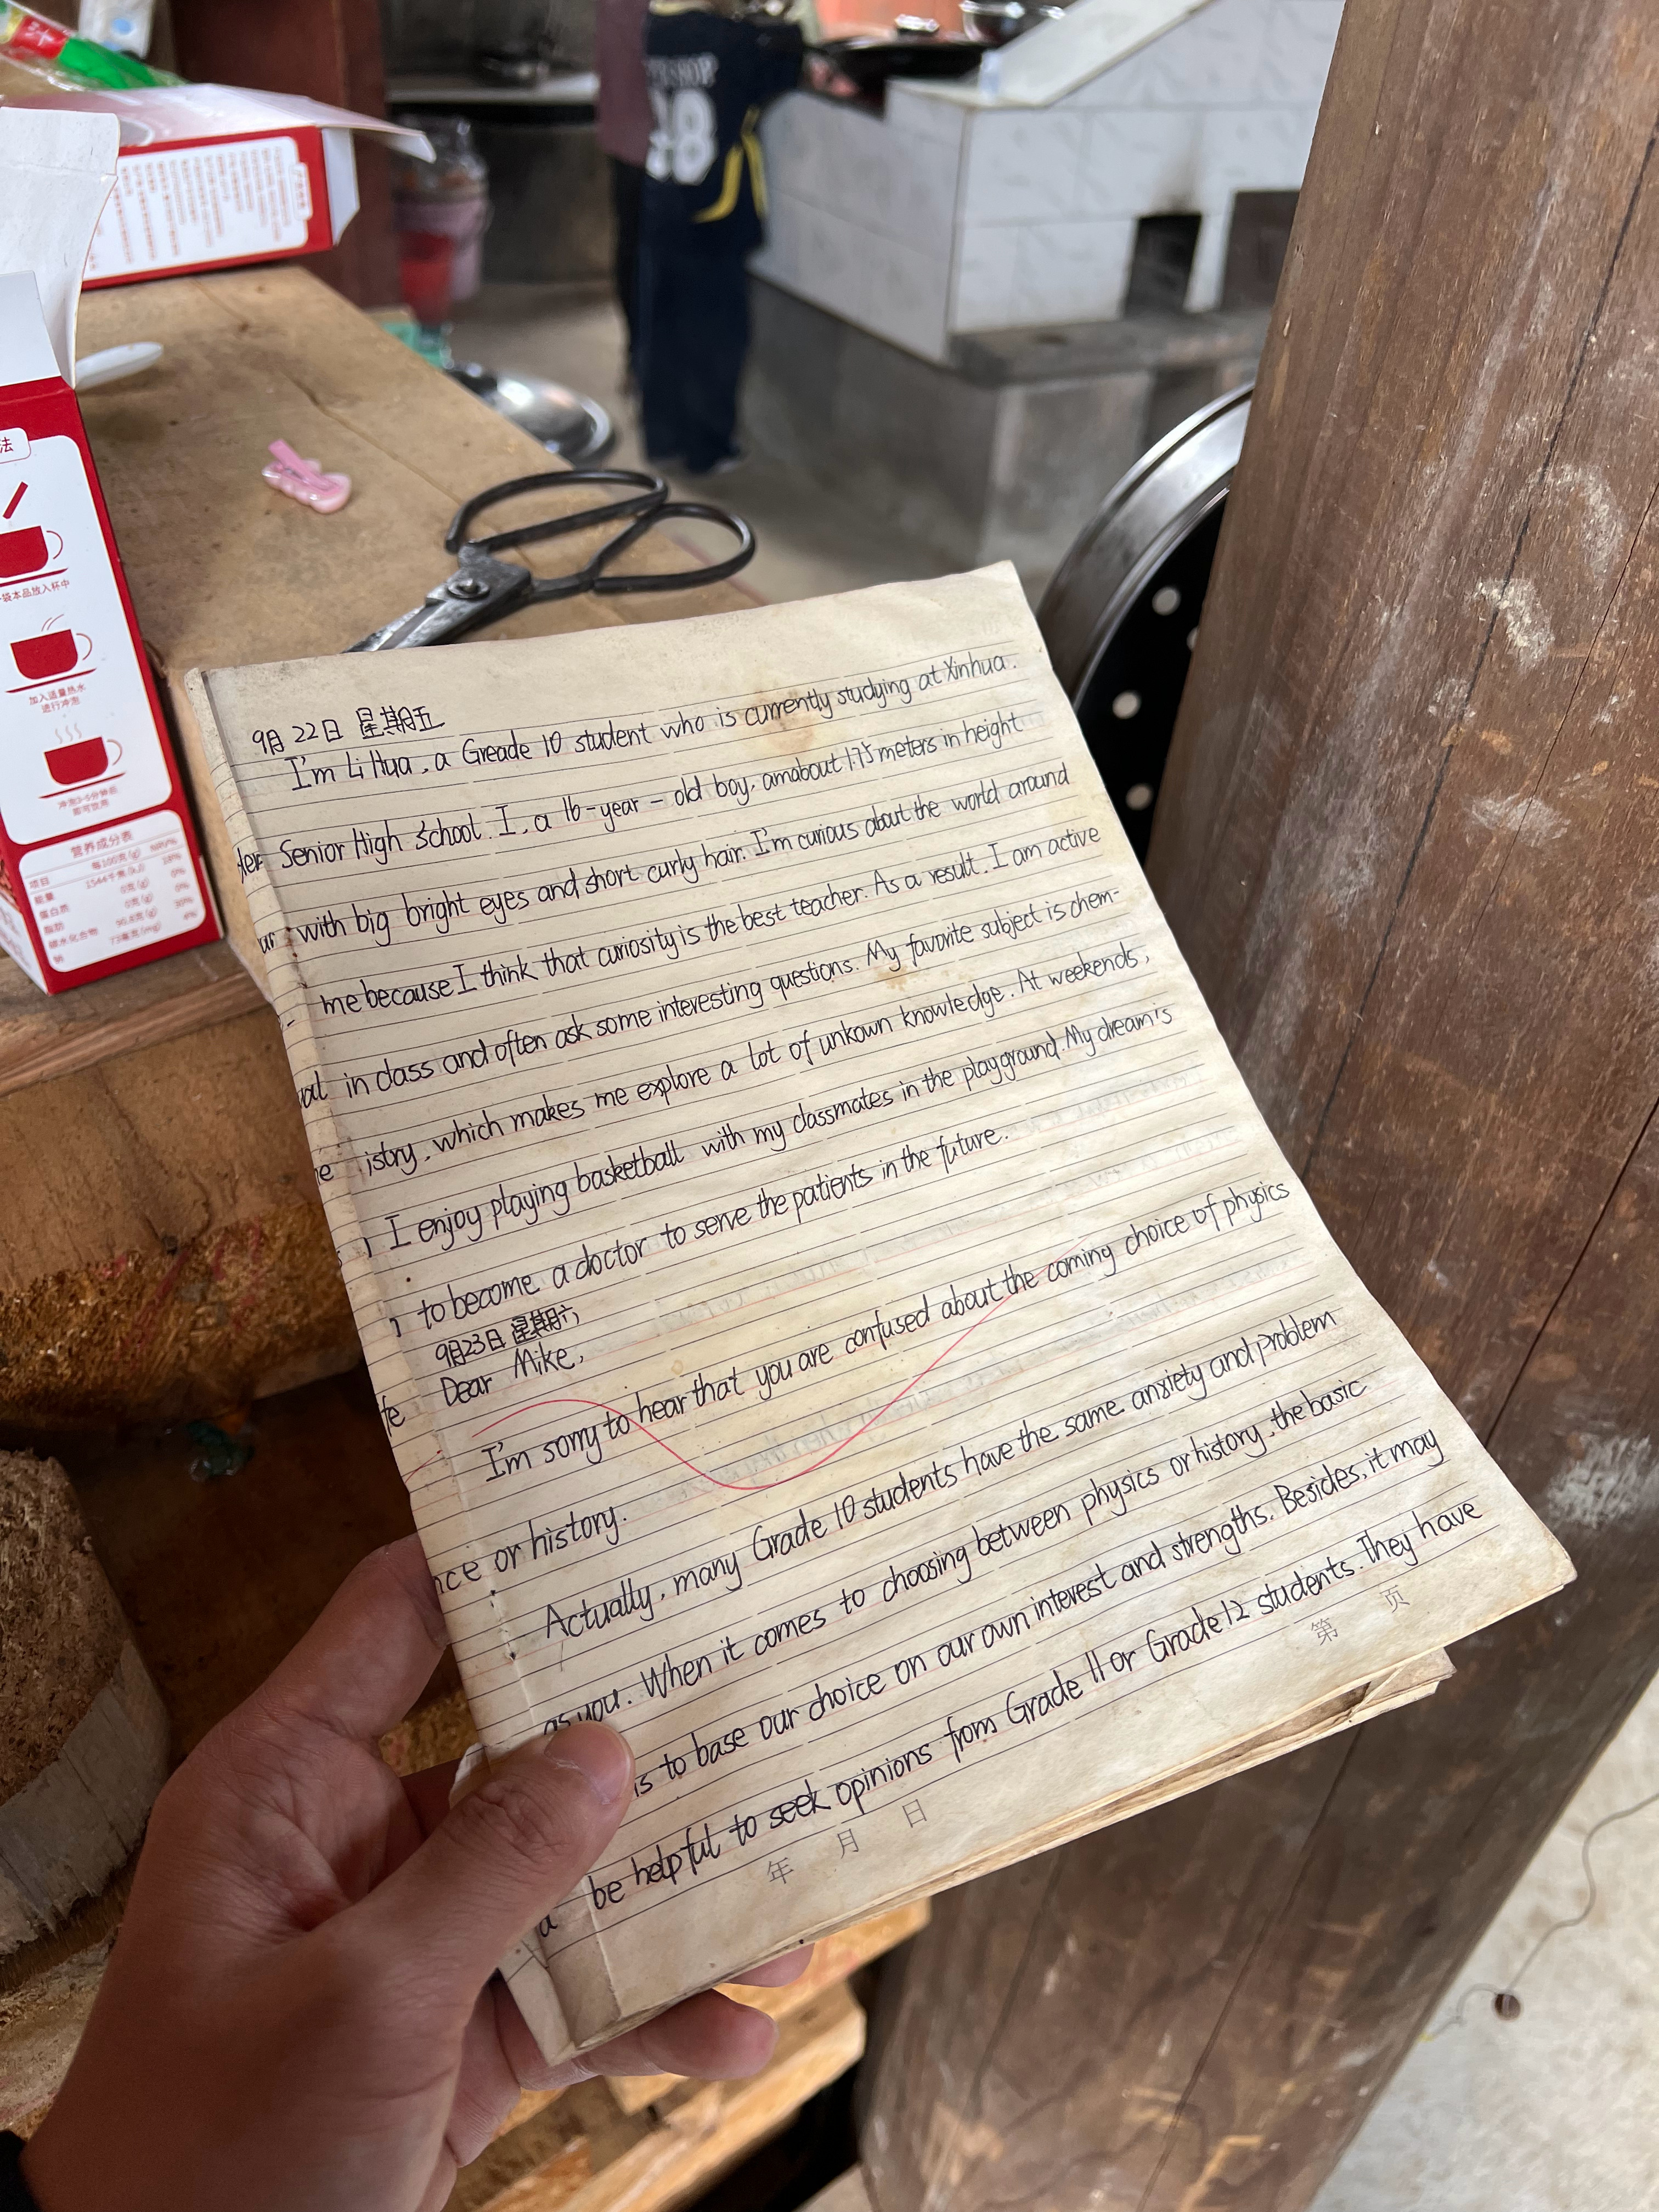 SHOP
28
法
袋本品放入杯中
加入适量热水
进行冲泡
冲泡3-5分钟后
即可饮用
营养成分表
项目 每100克(g) NRV%
能量 1544千焦(kJ) 18%
蛋白质 0克(g) 0%
脂肪 0克(g) 0%
碳水化合物 90.8克(g) 30%
钠 73毫克(mg) 4%
9月22日 星期五
I'm Li Hua, a Greade 10 student who is currently studying at Xinhua.
Senior High School. I, a 16-year-old boy, amabout 1.75 meters in height
with big bright eyes and short curly hair. I'm curious about the world around
me because I think that curiosity is the best teacher. As a result, I am active
in class and often ask some interesting questions. My favorite subject is chem-
istry, which makes me explore a lot of unkown knowledge. At weekends,
I enjoy playing basketball with my classmates in the playground. My dream's
to become a doctor to serve the patients in the future.
9月23日 星期六
Dear Mike,
I'm sorry to hear that you are confused about the coming choice of physics
or history.
Actually, many Grade 10 students have the same anxiety and problem
as you. When it comes to choosing between physics or history, the basic
is to base our choice on our own interest and strengths. Besides, it may
be helpful to seek opinions from Grade 11 or Grade 12 students. They have
年 月 日
第 页